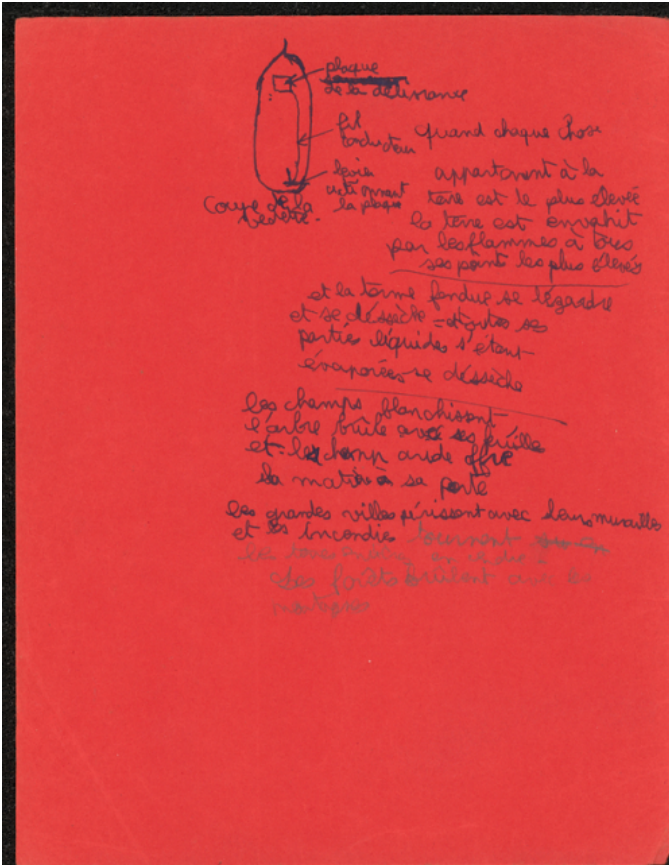 plaque
de la délivrance
fil
conducteur
levier
actionnant
la plaque
Coupe de la
vedette.
quand chaque chose
appartenant à la
terre est le plus élevée
la terre est envahit
par les flammes à tous
ses point les plus élevés
et la terre fendue se lézardre
et se déssèche =
parties liquides s'étant
évaporées se déssèche
les champs blanchissent
l'arbre brûle avec ses feuille
et le champ aride offre
la matière à sa perte
les grandes villes périssent avec leurs murailles
et les incendies tournent
les
des forêts brûlent avec les
montagnes